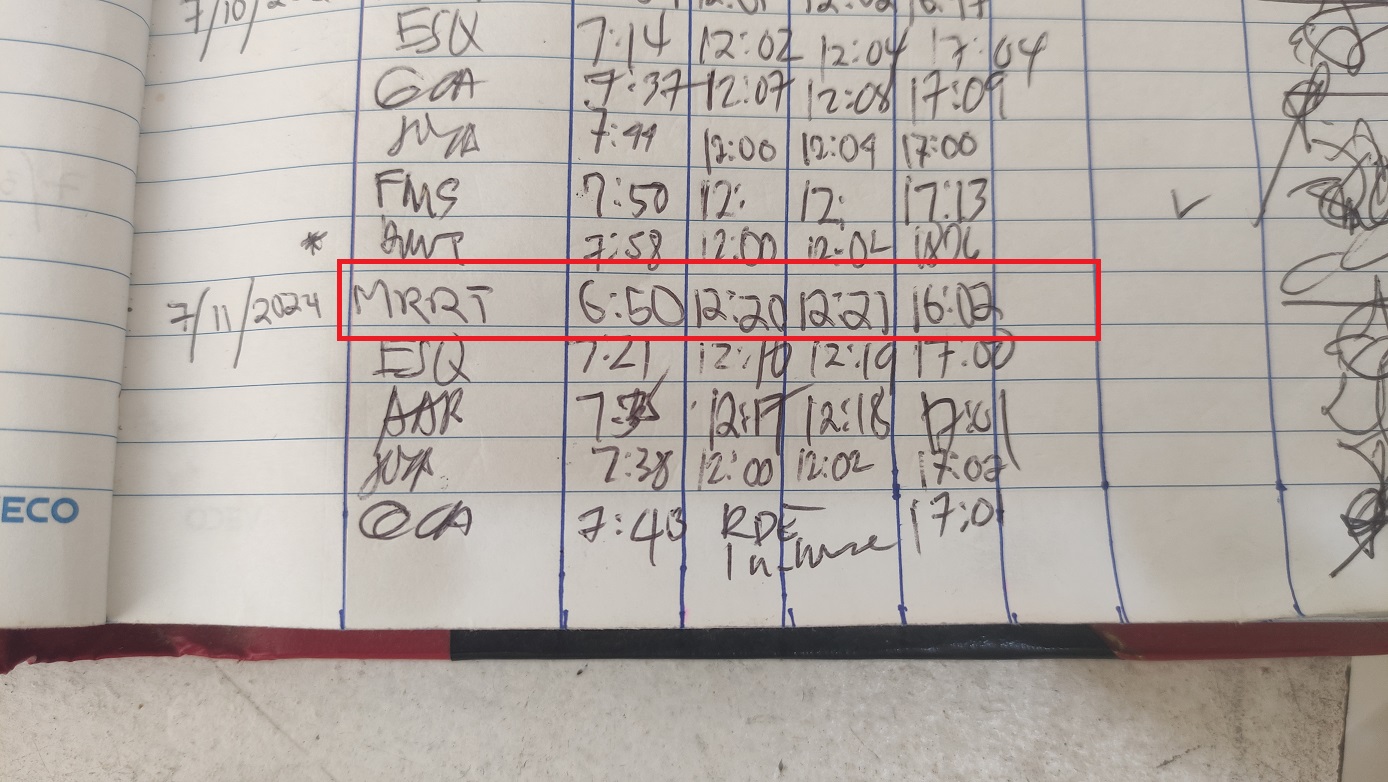 7/10/
ESQ 7:14 12:02 12:04 17:04
GCA 7:37 12:07 12:08 17:09
7:44 12:00 12:04 17:00
FMS 7:50 12: 12: 17:13
* 7:58 12:00 12:02
7/11/2024 MRRT 6:50 12:20 12:21 16:02
ESQ 7:21 12:10 12:19 17:00
AAR 12:17 12:18 17:01
7:38 12:00 12:02 17:02
GCA 7:43 RDE 17:01
ECO